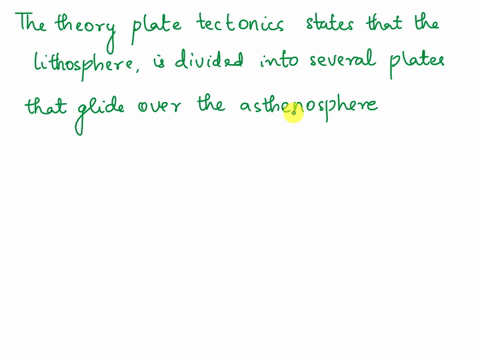 The theory plate tectonics states that the
lithosphere, is divided into several plates
that glide over the asthenosphere